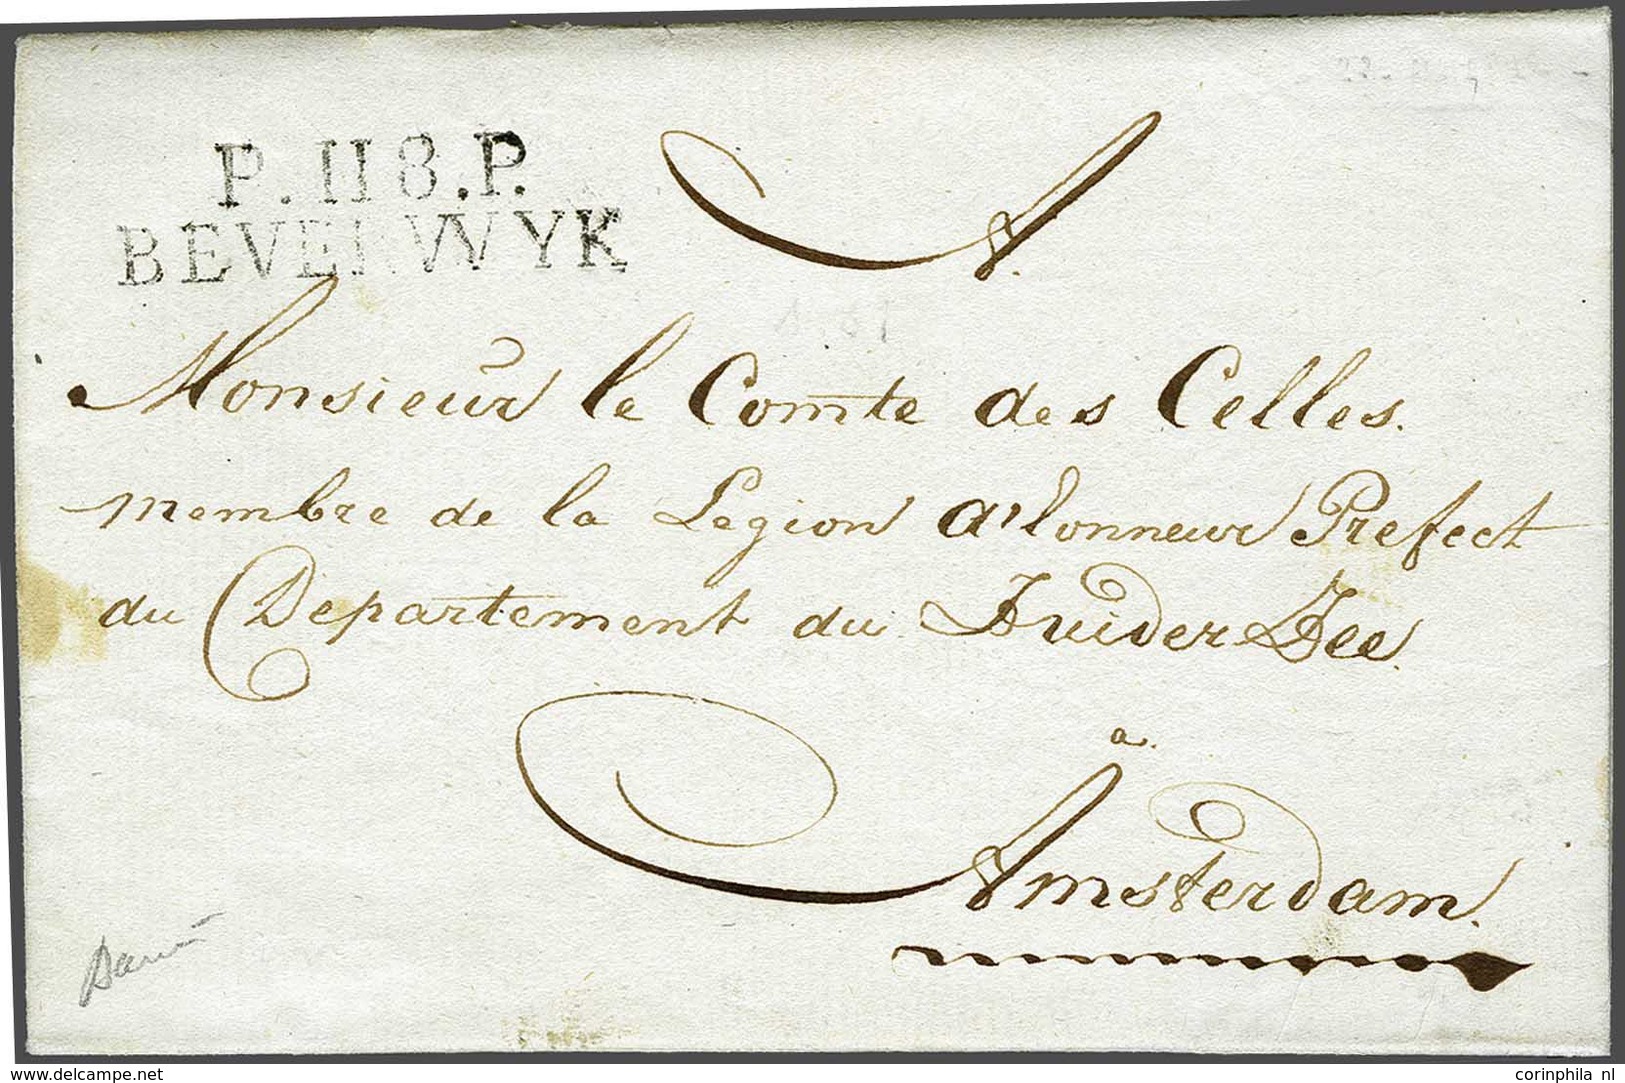 P.118.P.
BEVERWYK
A.
Monsieur le Comte des Celles.
membre de la Legion d'lonneur Prefect
du Departement du Zuider Zee.
a.
Amsterdam.
www.delcampe.net
corinphila nl